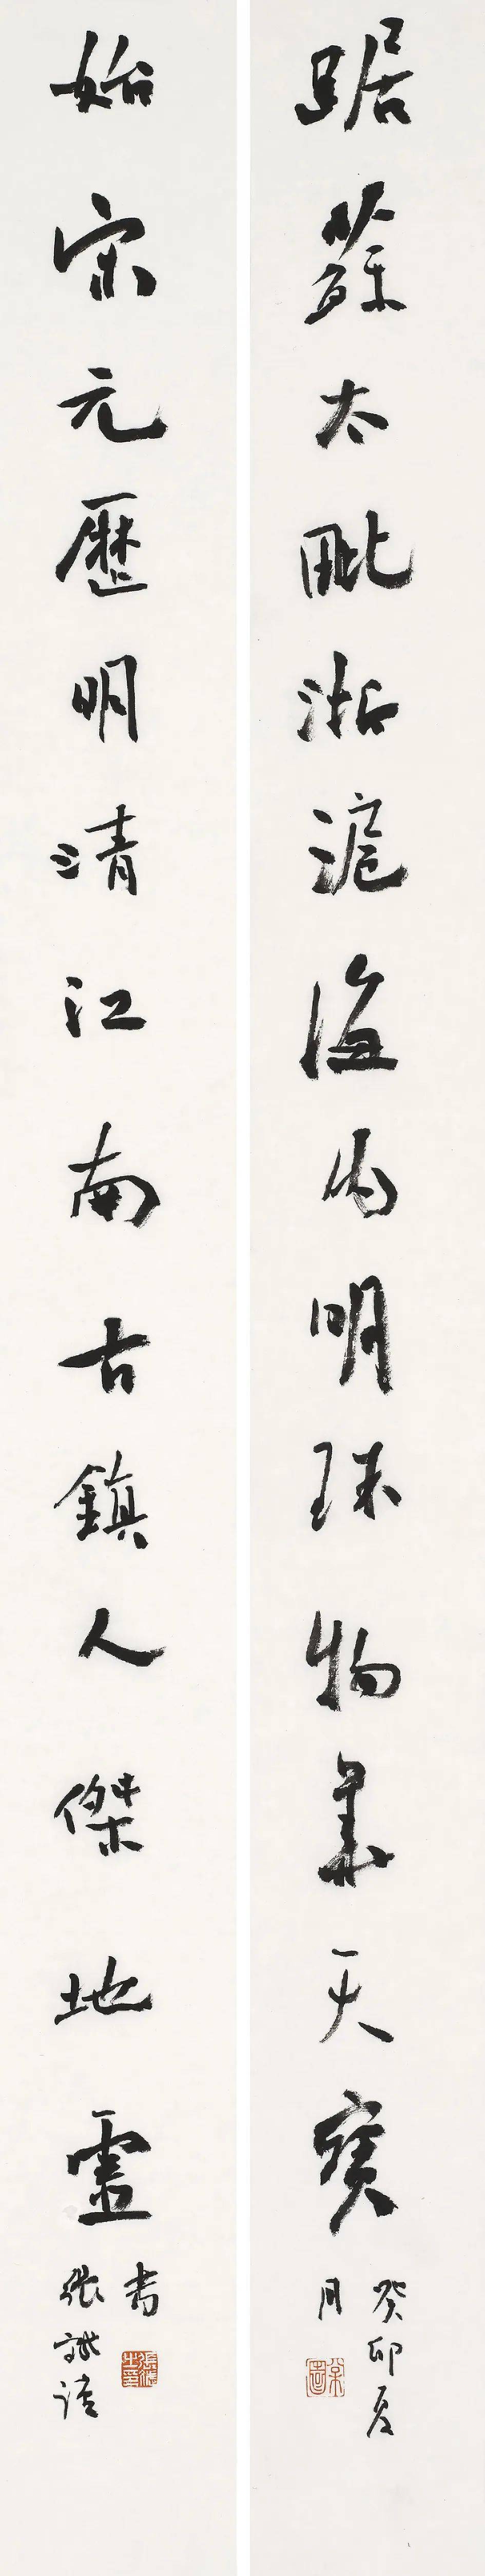 踞蘇太毗浙滬海内明珠物華天寶
癸卯夏
月
始宋元歷明清江南古鎮人傑地靈
書
張